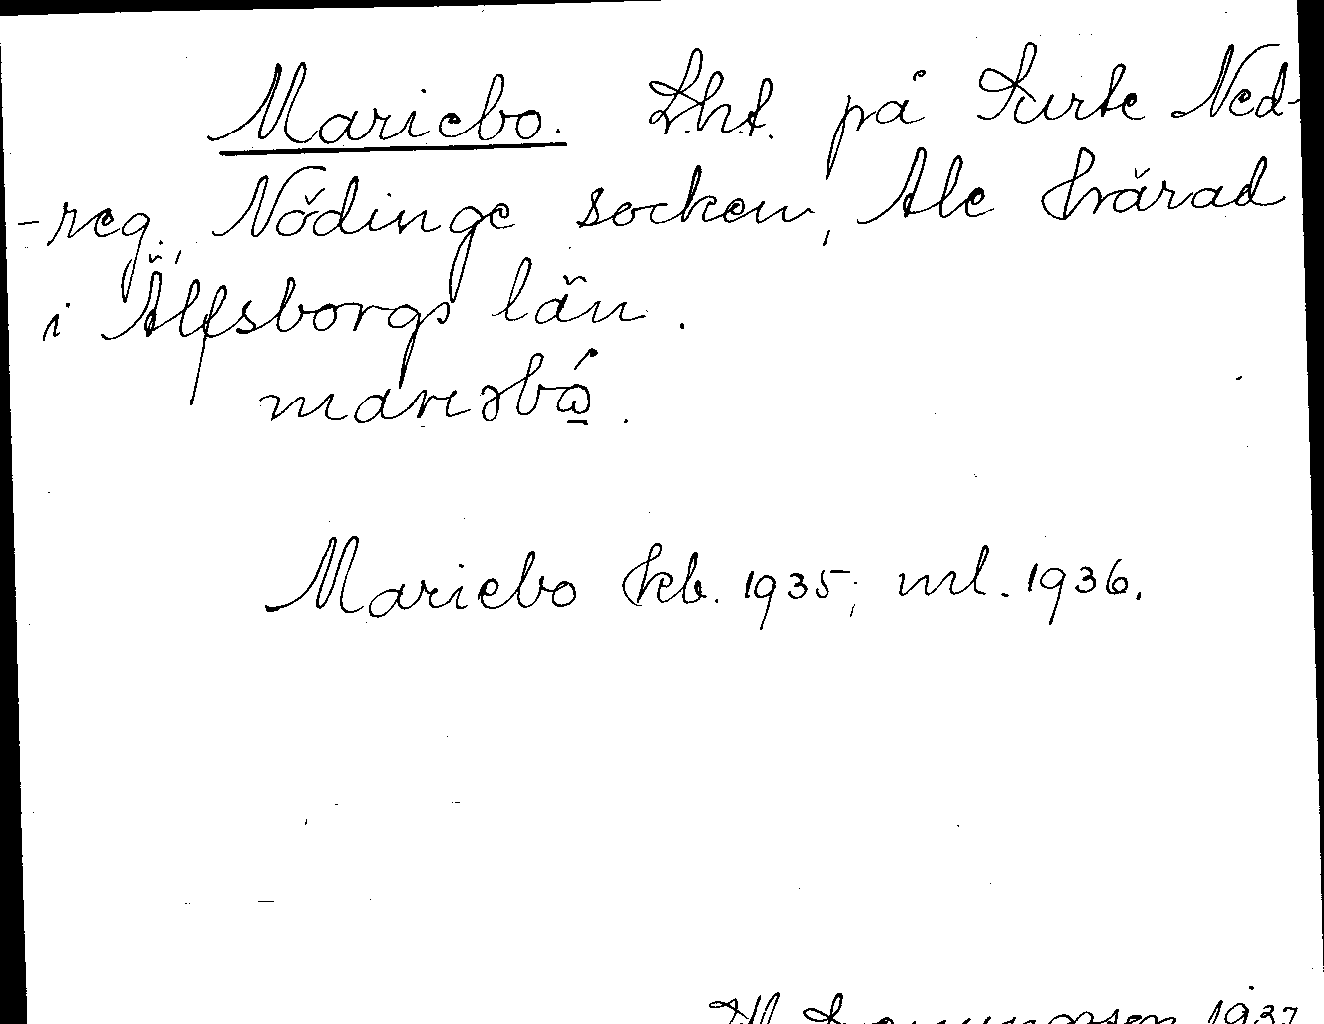 Mariebo. Lht. på Surte Ned-
-reg., Nödinge socken, Ale härad
i Älfsborgs län.
Mariebo kb. 1935; ml. 1936.
1937